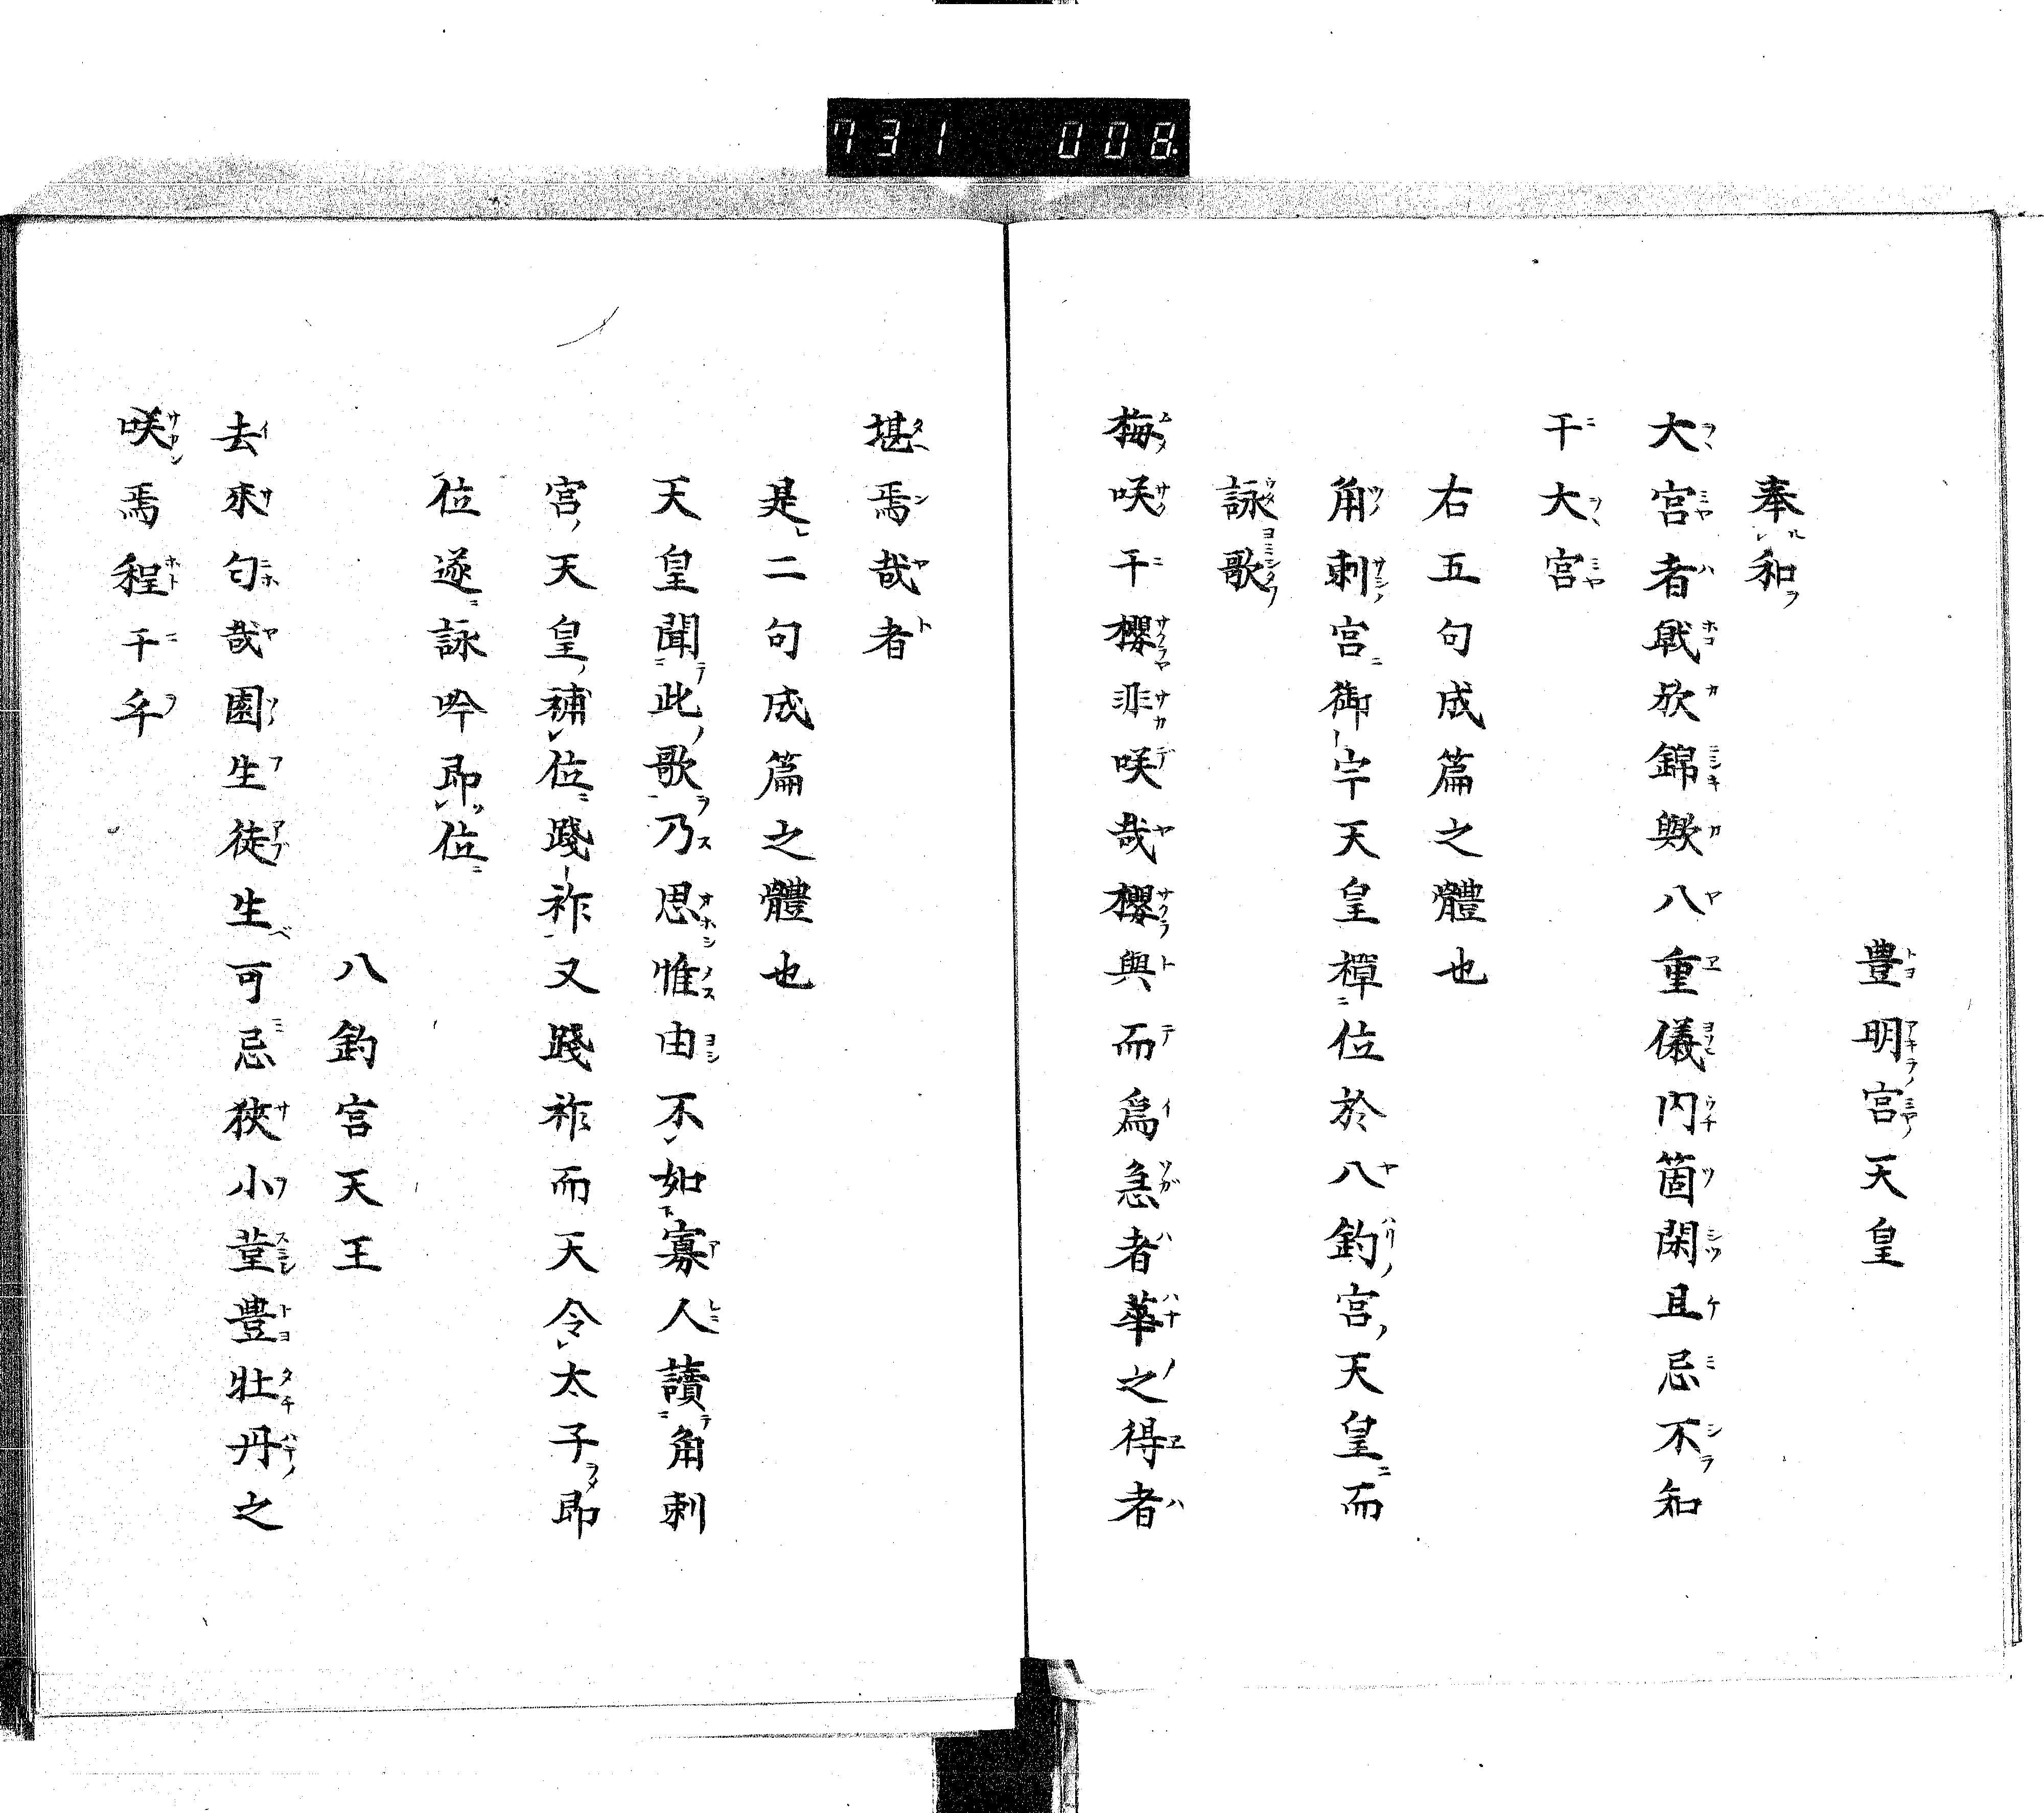 731 008
豊明宮天皇
奉和
大宮者戢欤錦歟八重儀内箇閑且忌不知
干大宮
右五句成篇之體也
角刺宮御宇天皇禪位於八釣宮天皇而
詠歌
梅咲干櫻非咲哉櫻與而爲急者華之得者
堪焉哉者
是二句成篇之體也
天皇聞此歌乃思惟由不如寡人讀角刺
宮天皇補位踐祚又踐祚而天令太子即
位遂詠吟即位
八釣宮天王
去來匂哉園生徒生可忌狹小菫豊牡丹之
咲焉程干年